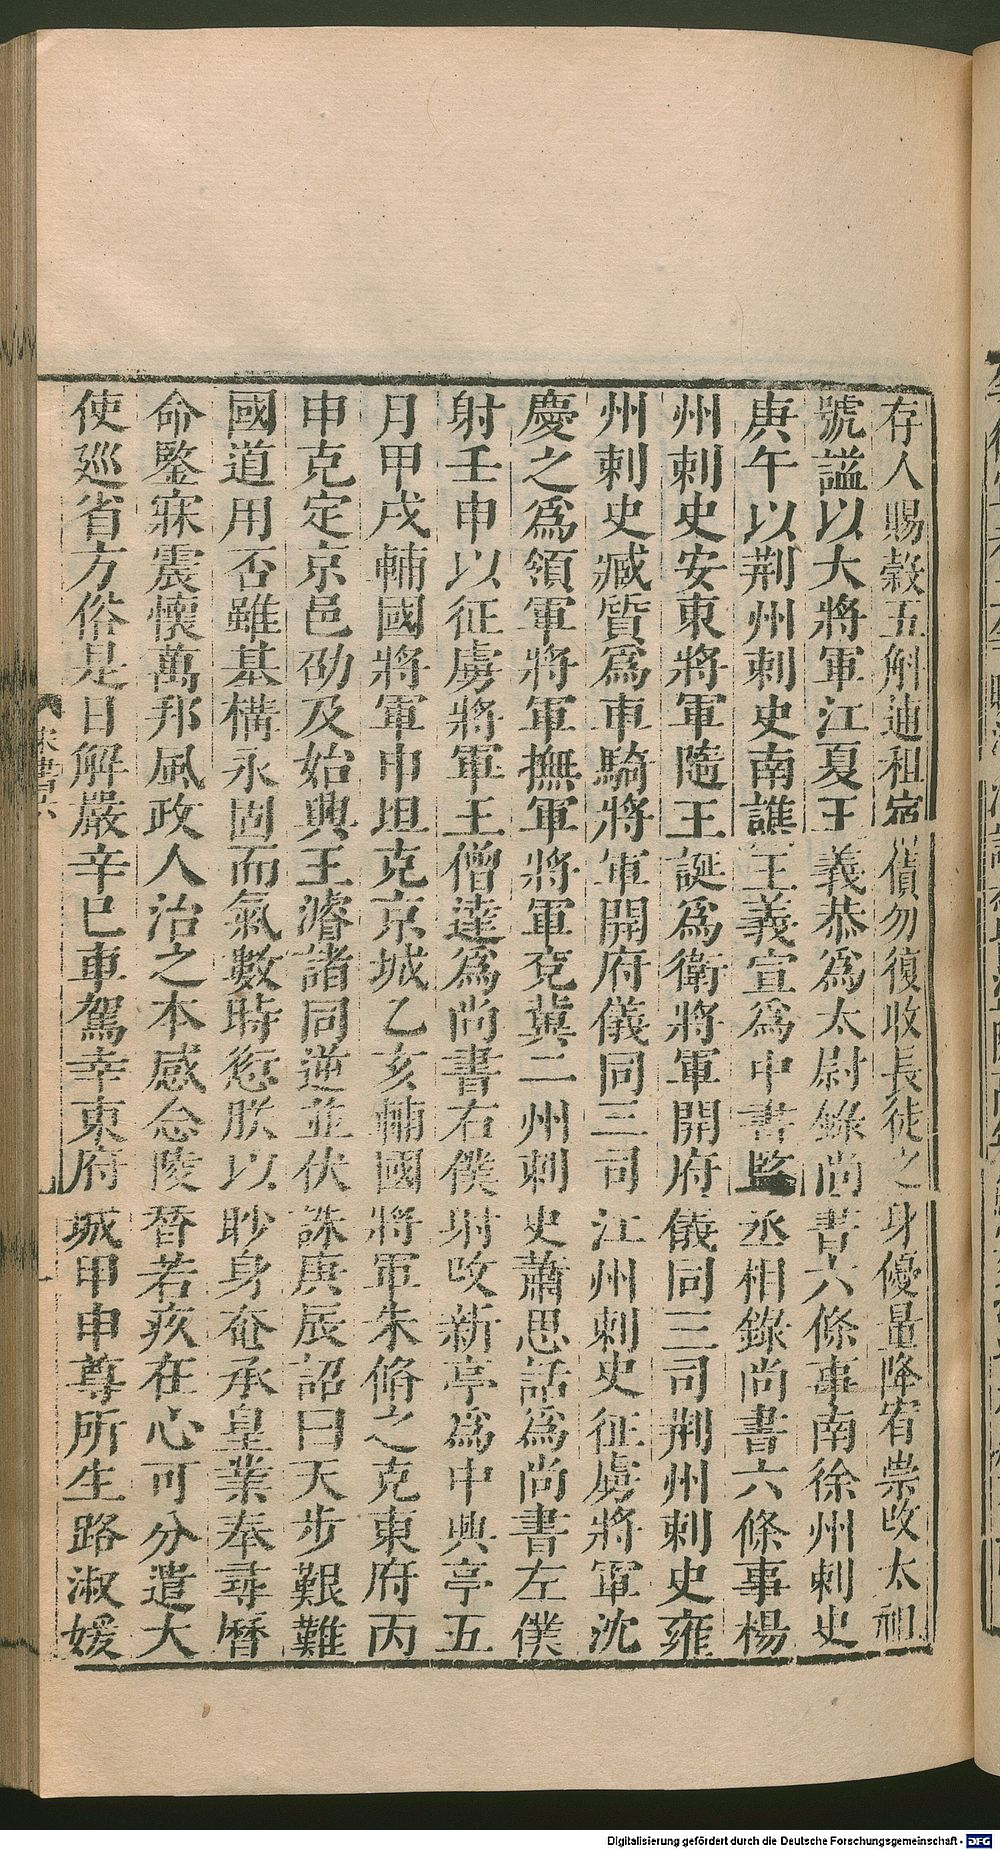 存人賜穀五斛逋租宿債勿復收長徒之身優量降宥崇改太祖
號謚以大將軍江夏王義恭爲太尉錄尚書六條事南徐州刺史
庚午以荆州刺史南譙王義宣爲中書監丞相錄尚書六條事楊
州刺史安東將軍隨王誕爲衛將軍開府儀同三司荆州刺史雍
州刺史臧質爲車騎將軍開府儀同三司江州刺史征虜將軍沈
慶之爲領軍將軍撫軍將軍兗冀二州刺史蕭思話爲尚書左僕
射壬申以征虜將軍王僧達爲尚書右僕射改新亭爲中興亭五
月甲戌輔國將軍申坦克京城乙亥輔國將軍朱脩之克東府丙
申克定京邑劭及始興王濬諸同逆並伏誅庚辰詔曰天步艱難
國道用否雖基構永固而氣數時愆朕以眇身奄承皇業奉尋曆
命鑒寐震懷萬邦風政人治之本感念陵替若疾在心可分遣大
使廵省方俗是日解嚴辛巳車駕幸東府城甲申尊所生路淑媛
宋書六
Digitalisierung gefördert durch die Deutsche Forschungsgemeinschaft - DFG